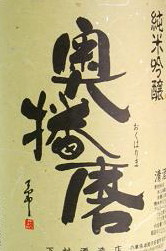 純米吟醸
奥播磨
おくはりま
清酒
下村酒造店